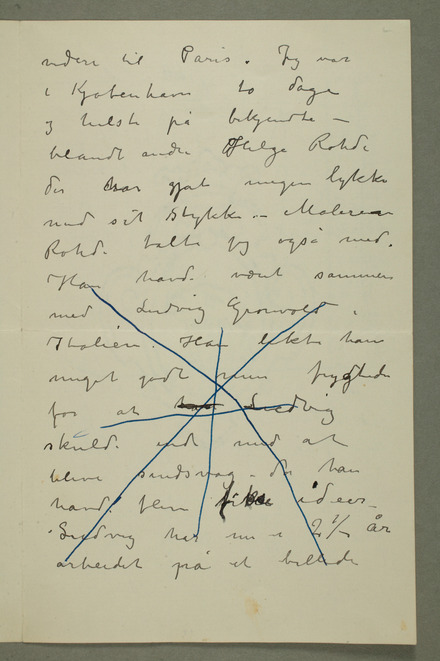 videre til Paris. Jeg var
i Kjøbenhavn to dage
og hilste på bekjendte –
blandt andre Helge Rohde
der har gjort megen lykke
med sit Stykke – Maleren
Rohde talte jeg også med.
Han havde vært sammen
med Ludvig Grønvold i
Italien. Han likte ham
meget godt men frygtede
for at Ludvig
skulde ende med at
blive sindssvag – da han
havde flere fikse ideer –
Ludvig har nu i 2½ år
arbeidet på et billede